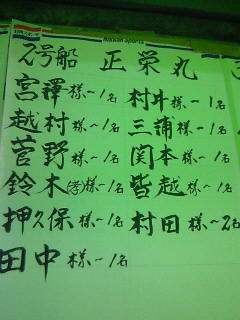 Nikkan Sports
2号船 正栄丸
宮澤様～1名 村井様～1名
越村様～1名 三浦様～1名
菅野様～1名 関本様～1名
鈴木(孝)様～1名 皆越様～1名
押久保様～1名 村田様～2名
田中様～1名